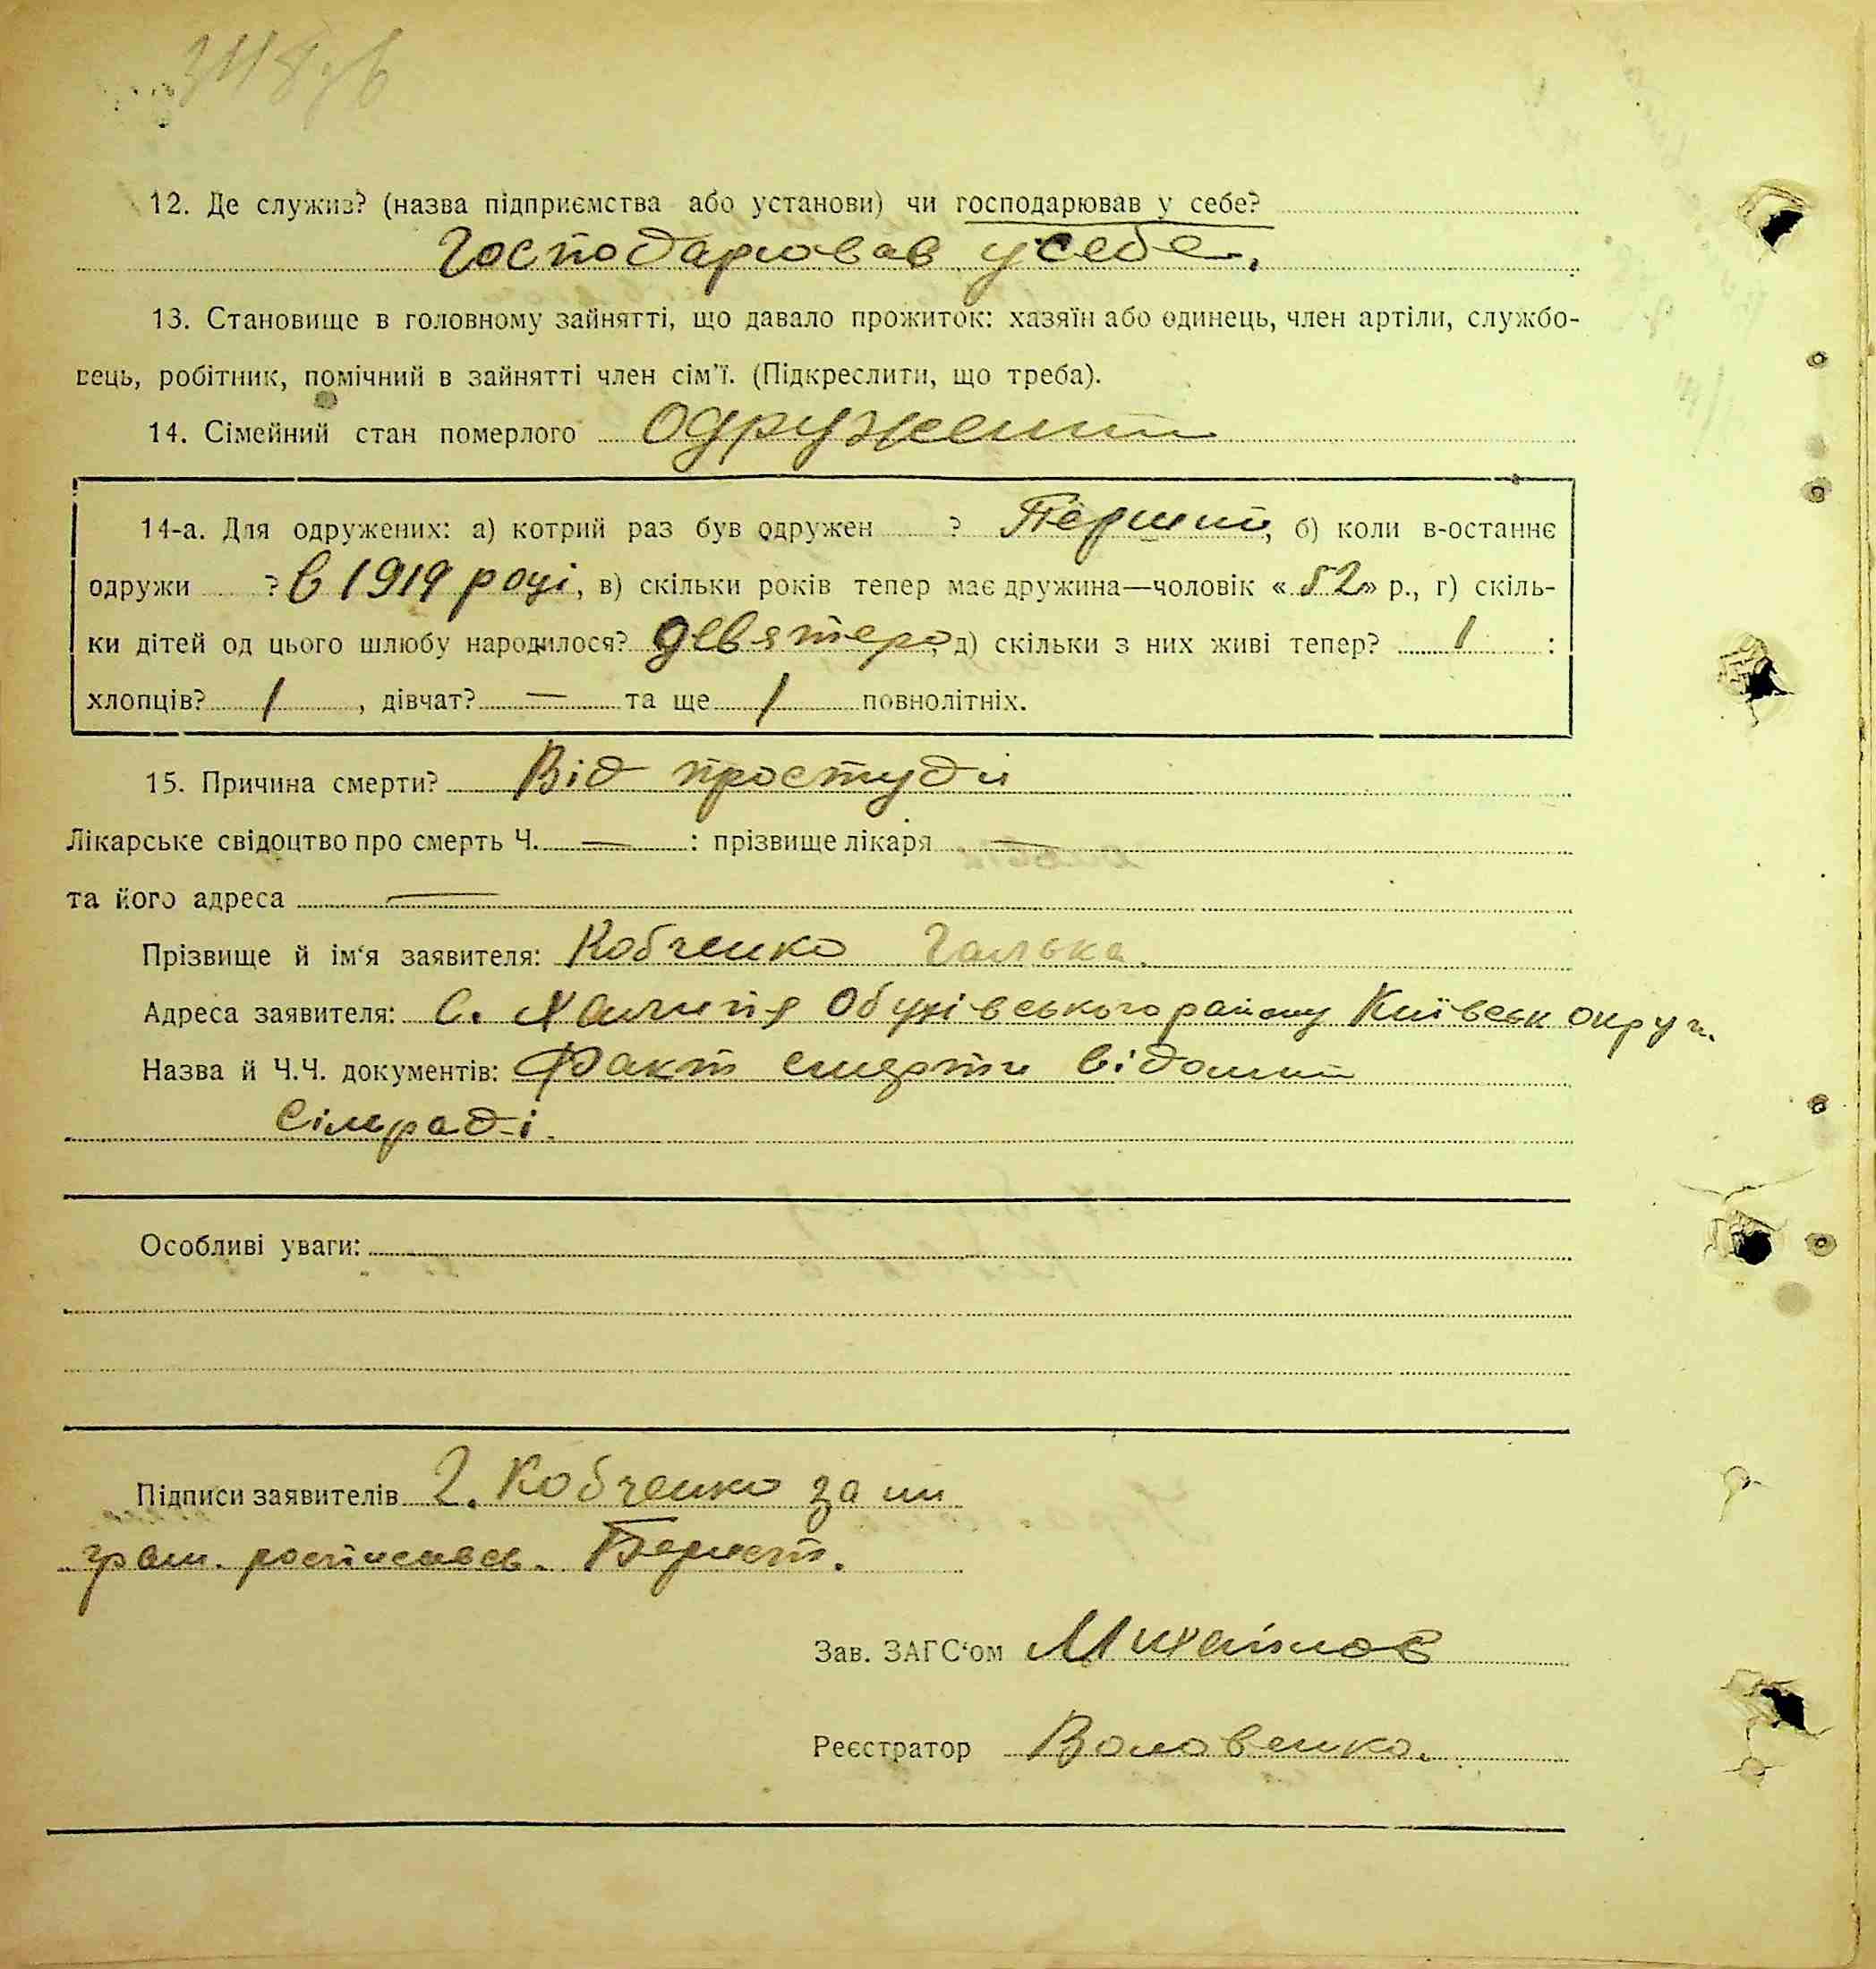 12. Де служив? (назва підприємства або установи) чи господарював у себе?
Господарював у себе.
13. Становище в головному зайнятті, що давало прожиток: хазяїн або одинець, член артіли, службо-
вець, робітник, помічний в зайнятті член сім'ї. (Підкреслити, що треба).
14. Сімейний стан померлого одружений
14-а. Для одружених: а) котрий раз був одружен ? Перший, б) коли в-останнє
одружи ? в 1919 році, в) скільки років тепер має дружина—чоловік «52» р., г) скіль-
ки дітей од цього шлюбу народилося? девятеро, д) скільки з них живі тепер? 1 :
хлопців? 1, дівчат? — та ще 1 повнолітніх.
15. Причина смерти? Від простуди
Лікарське свідоцтво про смерть Ч. — : прізвище лікаря —
та його адреса —
Прізвище й ім'я заявителя: Кобченко Галька.
Адреса заявителя: С. Халипя Обухівського району Київськ округ.
Назва й Ч.Ч. документів: Факт смерти відомий
Сільраді.
Особливі уваги:
Підписи заявителів Г. Кобченко за
грам. росписавсь.
Зав. ЗАГС'ом Михайлов
Реєстратор Воловенко.